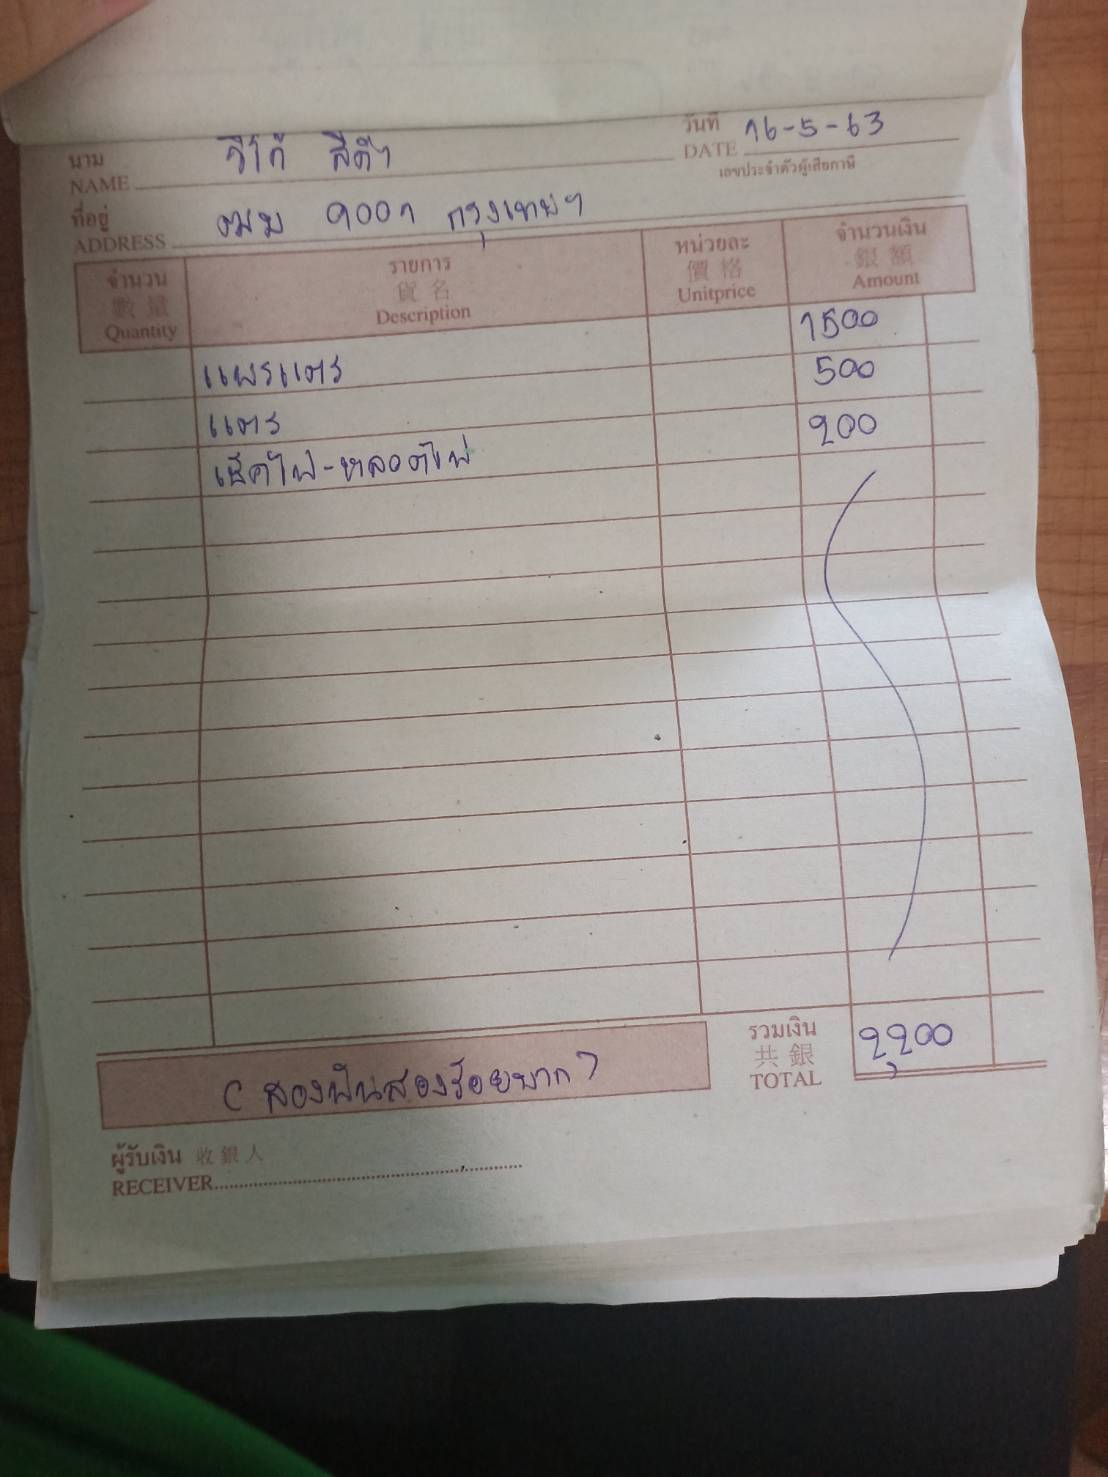 นาม วีโก้ สีดำ
NAME
วันที่ 16-5-63
DATE
เลขประจำตัวผู้เสียภาษี
ที่อยู่ ฒฆ 9001 กรุงเทพฯ
ADDRESS
จำนวน 數量 Quantity
รายการ 貨名 Description
หน่วยละ 價格 Unitprice
จำนวนเงิน 銀額 Amount
แผรแตร 1500
แตร 500
เช็คไฟ-หลอดไฟ 200
(สองพันสองร้อยบาท)
รวมเงิน 共銀 TOTAL 2,200
ผู้รับเงิน 收銀人
RECEIVER